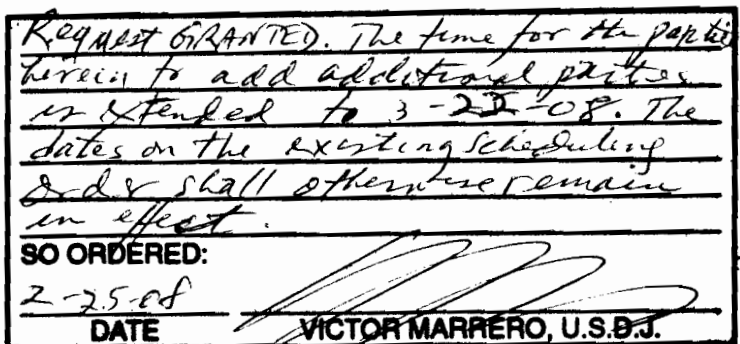 Request GRANTED. The time for the parties
herein to add additional parties
is extended to 3--08. The
dates on the existing scheduling
order shall otherwise remain
in effect.
SO ORDERED:
2-25-08
DATE VICTOR MARRERO, U.S.D.J.